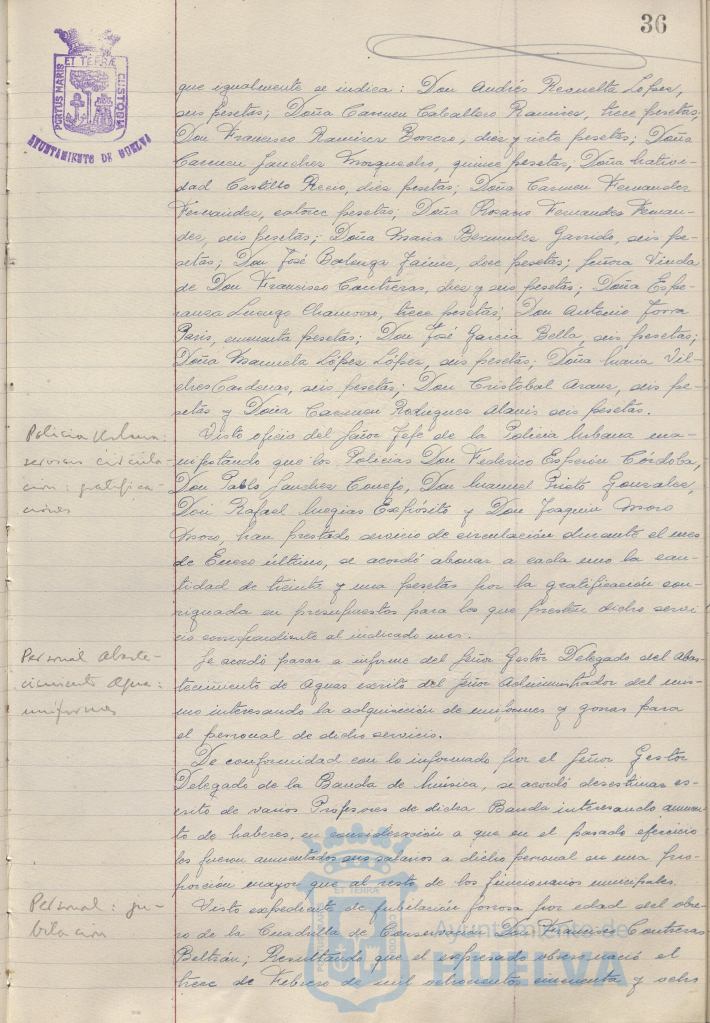 36
PORTUS MARIS ET TERRÆ CUSTODIA
AYUNTAMIENTO DE HUELVA
que igualmente se indica: Don Andrés Revuelta López,
seis pesetas; Doña Carmen Caballero Ramírez, trece pesetas;
Don Francisco Ramírez Borrero, diez y siete pesetas; Doña
Carmen Sanchez Mosquedro, quince pesetas; Doña Nativi-
dad Castillo Recio, diez pesetas; Doña Carmen Fernandez
Fernandez, catorce pesetas; Doña Rosario Fernandez Fernan-
dez, seis pesetas; Doña Maria Bermudez Garrido, seis pe-
setas; Don José Jaime, doce pesetas; Señora Viuda
de Don Francisco Contreras, diez y seis pesetas; Doña Espe-
ranza Luengo Chamorro, trece pesetas; Don Antonio Jorva
Paris, cincuenta pesetas; Don José García Bella, seis pesetas;
Doña Manuela López López, seis pesetas; Doña Juana Vil-
ches Cardenas, seis pesetas; Don Cristóbal Arauz, seis pe-
setas y Doña Carmen Rodriguez Alanis seis pesetas.
Policia Urbana:
servicio circula-
cion: gratifica-
ciones
Visto oficio del Señor Jefe de la Policia Urbana ma-
nifestando que los Policias Don Federico Córdoba,
Don Pablo Sanchez Conejo, Don Manuel Prieto Gonzalez,
Don Rafael Megias Expósito y Don Joaquin Moro
Moro, han prestado servicio de circulación durante el mes
de Enero último, se acordó abonar a cada uno la can-
tidad de treinta y una pesetas por la gratificación con-
signada en presupuestos para los que presten dicho servi-
cio correspondiente al indicado mes.
Personal Abaste-
cimiento Agua:
uniformes
Se acordó pasar a informe del Señor Gestor Delegado del Abas-
tecimiento de Aguas escrito del Señor Administrador del mis-
mo interesando la adquisición de uniformes y gorras para
el personal de dicho servicio.
De conformidad con lo informado por el Señor Gestor
Delegado de la Banda de Música, se acordó desestimar es-
crito de varios Profesores de dicha Banda interesando aumen-
to de haberes, en consideración a que en el pasado ejercicio
les fueron aumentados sus salarios a dicho personal en una pro-
porción mayor que al resto de los funcionarios municipales.
Personal: ju-
bilacion
Visto expediente de jubilación forzosa por edad del obre-
ro de la Cuadrilla de Conservación Don Francisco Contreras
Beltrán; Resultando que el expresado obrero nació el
trece de Febrero de mil ochocientos cincuenta y ocho
Ayuntamiento de
HUELVA